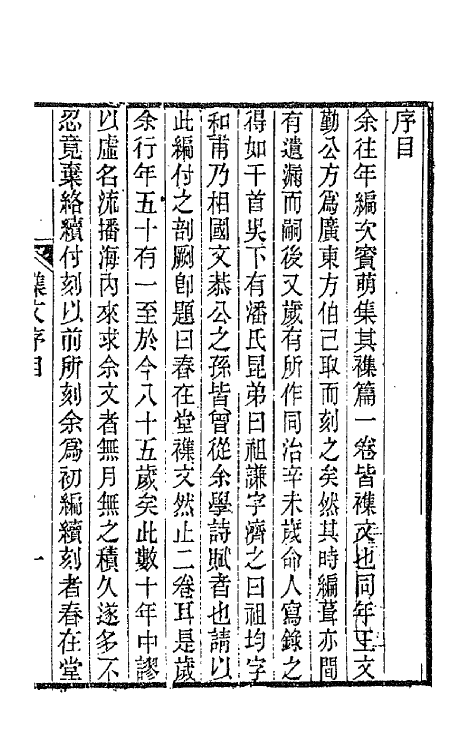 序目
余往年編次賓萌集其襍篇一卷皆襍文也同年王文
勤公方爲廣東方伯已取而刻之矣然其時編葺亦間
有遺漏而嗣後又歲有所作同治辛未歲命人寫錄之
得如干首吳下有潘氏昆弟曰祖謙字濟之曰祖均字
和甫乃相國文恭公之孫皆曾從余學詩賦者也請以
此編付之剞劂卽題曰春在堂襍文然止二卷耳是歲
余行年五十有一至於今八十五歲矣此數十年中謬
以虛名流播海內來求余文者無月無之積久遂多不
忍竟棄絡續付刻以前所刻余爲初編續刻者春在堂
襍文序目
一